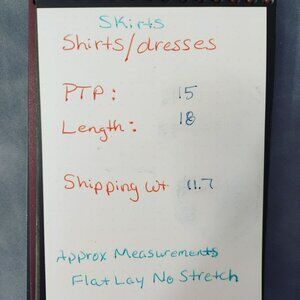 Skirts
Shirts/dresses
PTP: 15
Length: 18
Shipping wt 11.7
Approx Measurements
Flat Lay No Stretch